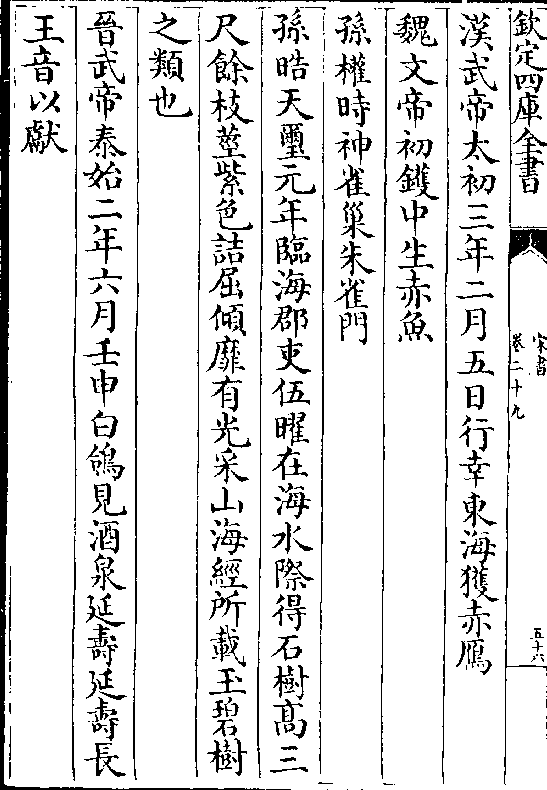 欽定四庫全書
宋書
卷二十九
五十六
漢武帝太初三年二月五日行幸東海獲赤鴈
魏文帝初鑊中生赤魚
孫權時神雀巢朱雀門
孫晧天璽元年臨海郡吏伍曜在海水際得石樹高三
尺餘枝莖紫色詰屈傾靡有光采山海經所載玉碧樹
之類也
晉武帝泰始二年六月壬申白鴿見酒泉延壽延壽長
王音以獻